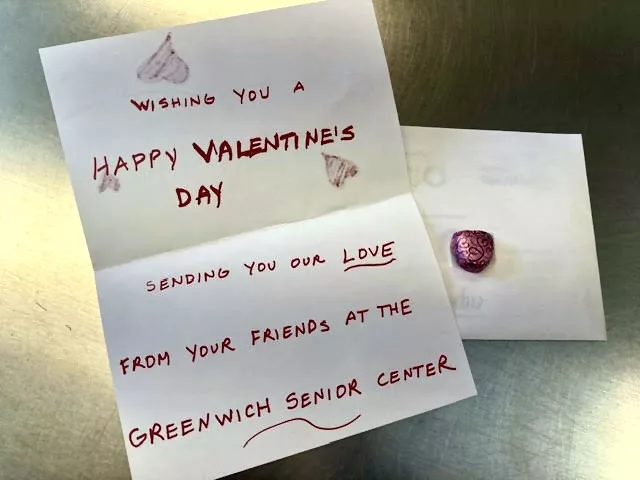 WISHING YOU A
HAPPY VALENTINE'S
DAY
SENDING YOU OUR LOVE
FROM YOUR FRIENDS AT THE
GREENWICH SENIOR CENTER